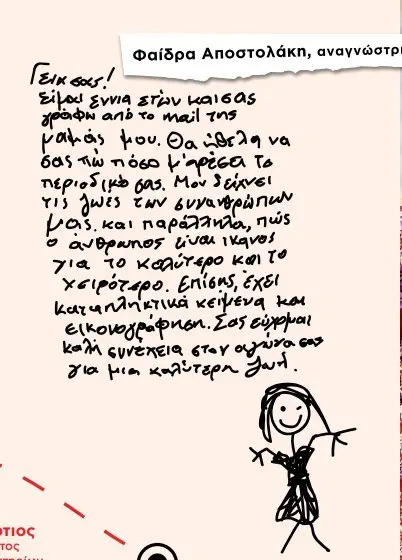 Φαίδρα Αποστολάκη, αναγνώστρι
Γεια σας!
Είμαι εννιά ετών και σας
γράφω από το mail της
μαμάς μου. Θα ήθελα να
σας πω πόσο μ'αρέσει το
περιοδικό σας. Μου δείχνει
τις ζωές των συνανθρώπων
μας και παράλληλα, πώς
ο άνθρωπος είναι ικανός
για το καλύτερο και το
χειρότερο. Επίσης, έχει
καταπληκτικά κείμενα και
εικονογράφηση. Σας εύχομαι
καλή συνέχεια στον αγώνα σας
για μια καλύτερη ζωή.
ότιος
τος